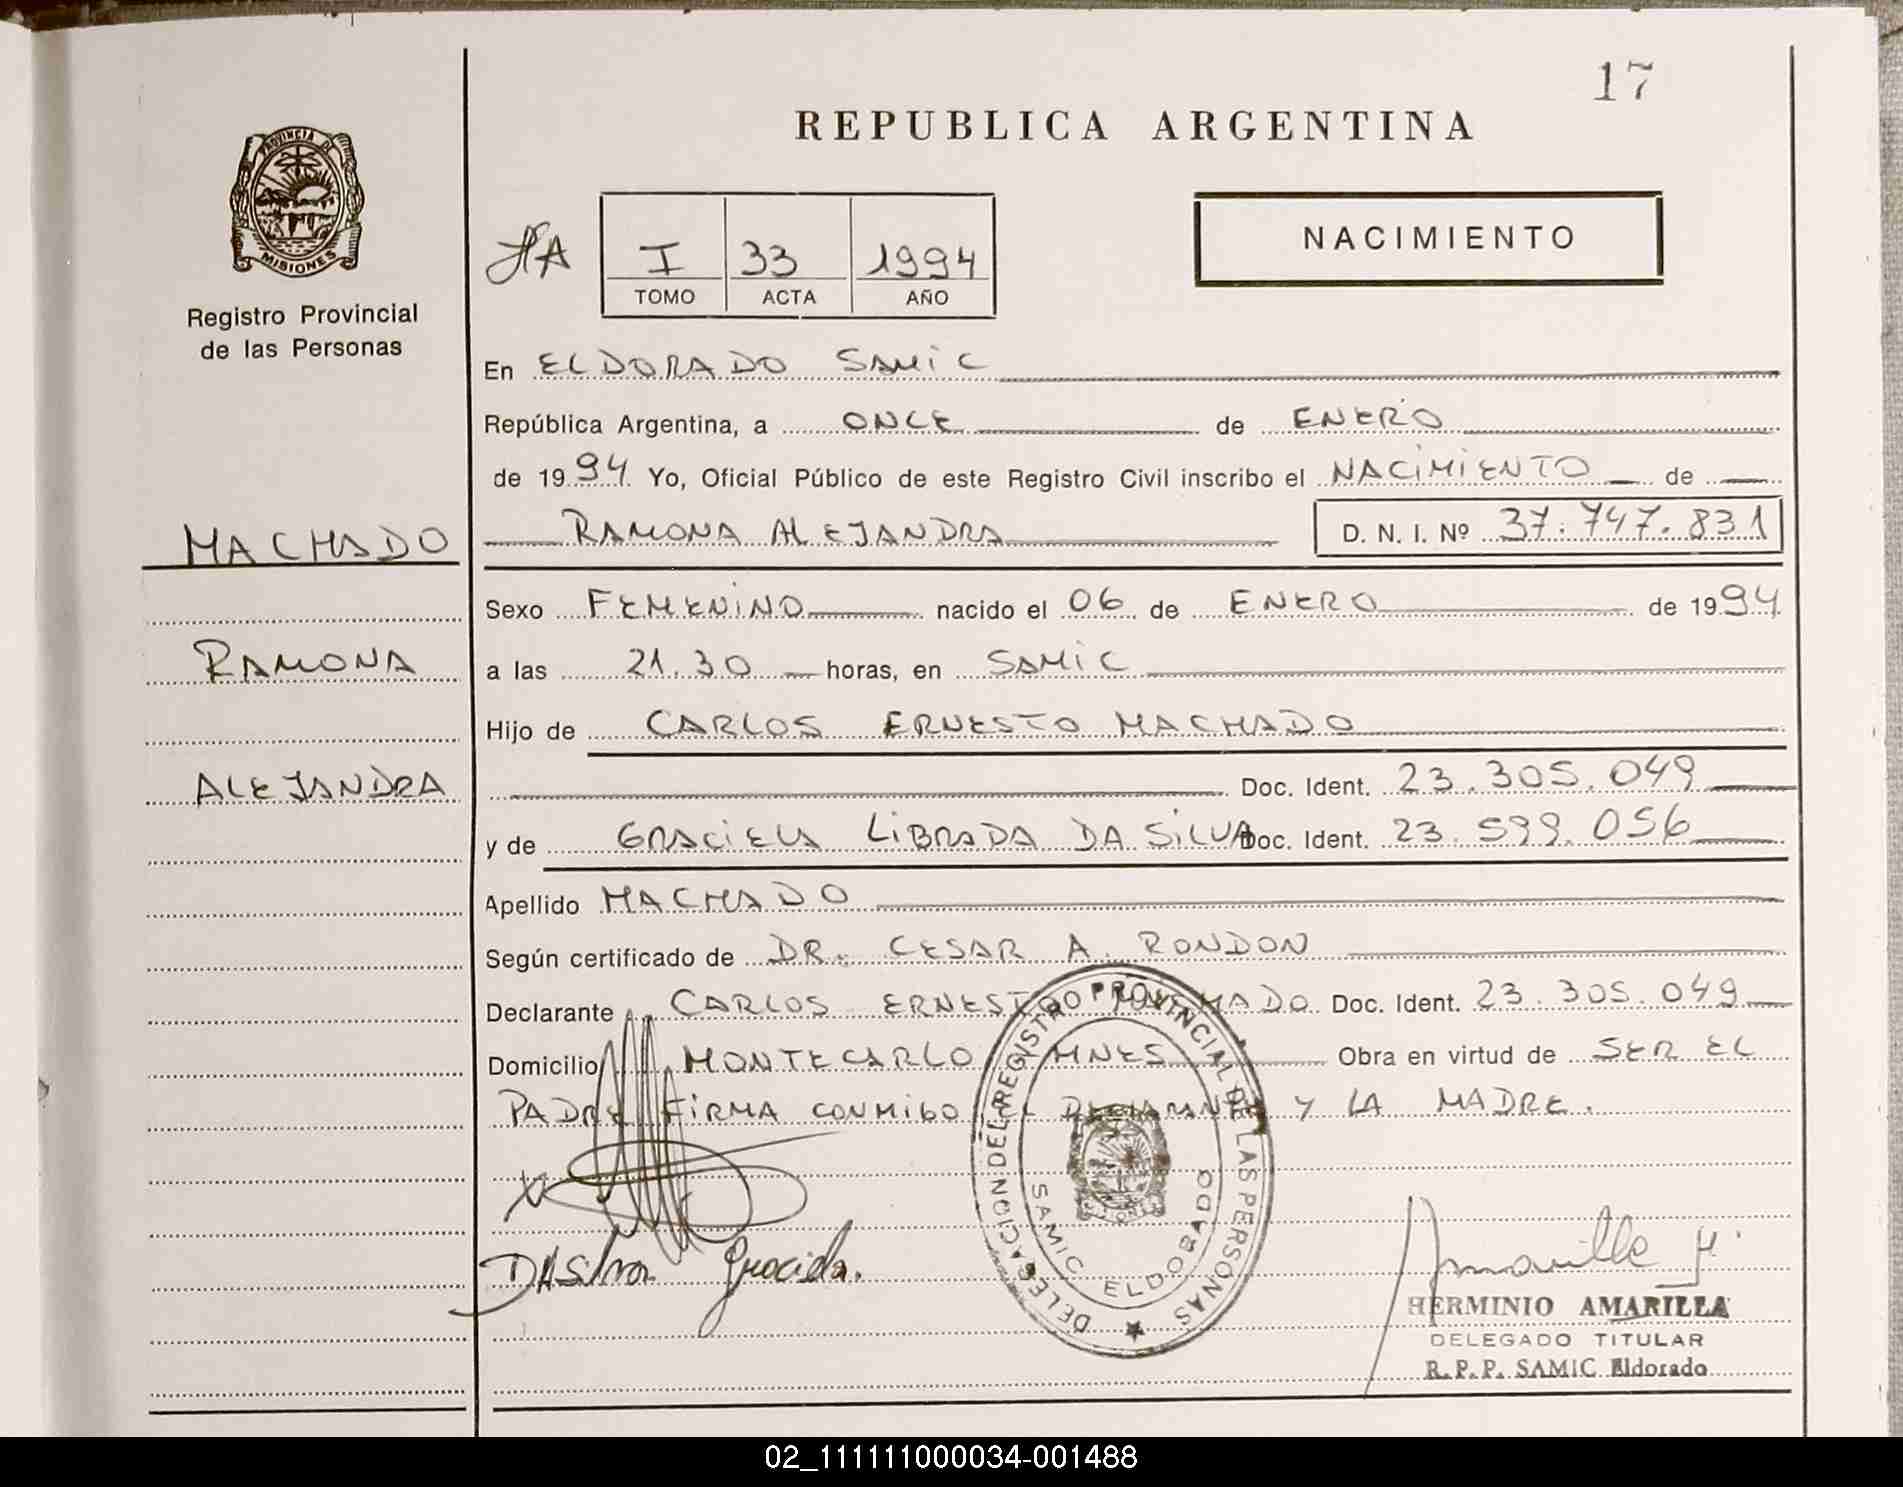 17
REPUBLICA ARGENTINA
PROVINCIA DE
MISIONES
Registro Provincial
de las Personas
HA
I 33 1994
TOMO ACTA AÑO
NACIMIENTO
En ELDORADO SAMIC
República Argentina, a ONCE de ENERO
de 1994 Yo, Oficial Público de este Registro Civil inscribo el NACIMIENTO de
MACHADO
RAMONA ALEJANDRA D. N. I. Nº 37.747.831
Sexo FEMENINO nacido el 06 de ENERO de 1994
RAMONA
a las 21.30 horas, en SAMIC
Hijo de CARLOS ERNESTO MACHADO
ALEJANDRA
Doc. Ident. 23.305.049
y de GRACIELA LIBRADA DA SILVA Doc. Ident. 23.599.056
Apellido MACHADO
Según certificado de DR. CESAR A. RONDON
Declarante CARLOS ERNESTO MACHADO Doc. Ident. 23.305.049
Domicilio MONTECARLO MNES Obra en virtud de SER EL
PADRE FIRMA CONMIGO EL DECLARANTE Y LA MADRE.
DELEGACION DEL REGISTRO PROVINCIAL DE LAS PERSONAS
SAMIC ELDORADO
DASilva Graciela.
Amarilla H.
HERMINIO AMARILLA
DELEGADO TITULAR
R.P.P. SAMIC Eldorado
02_111111000034-001488